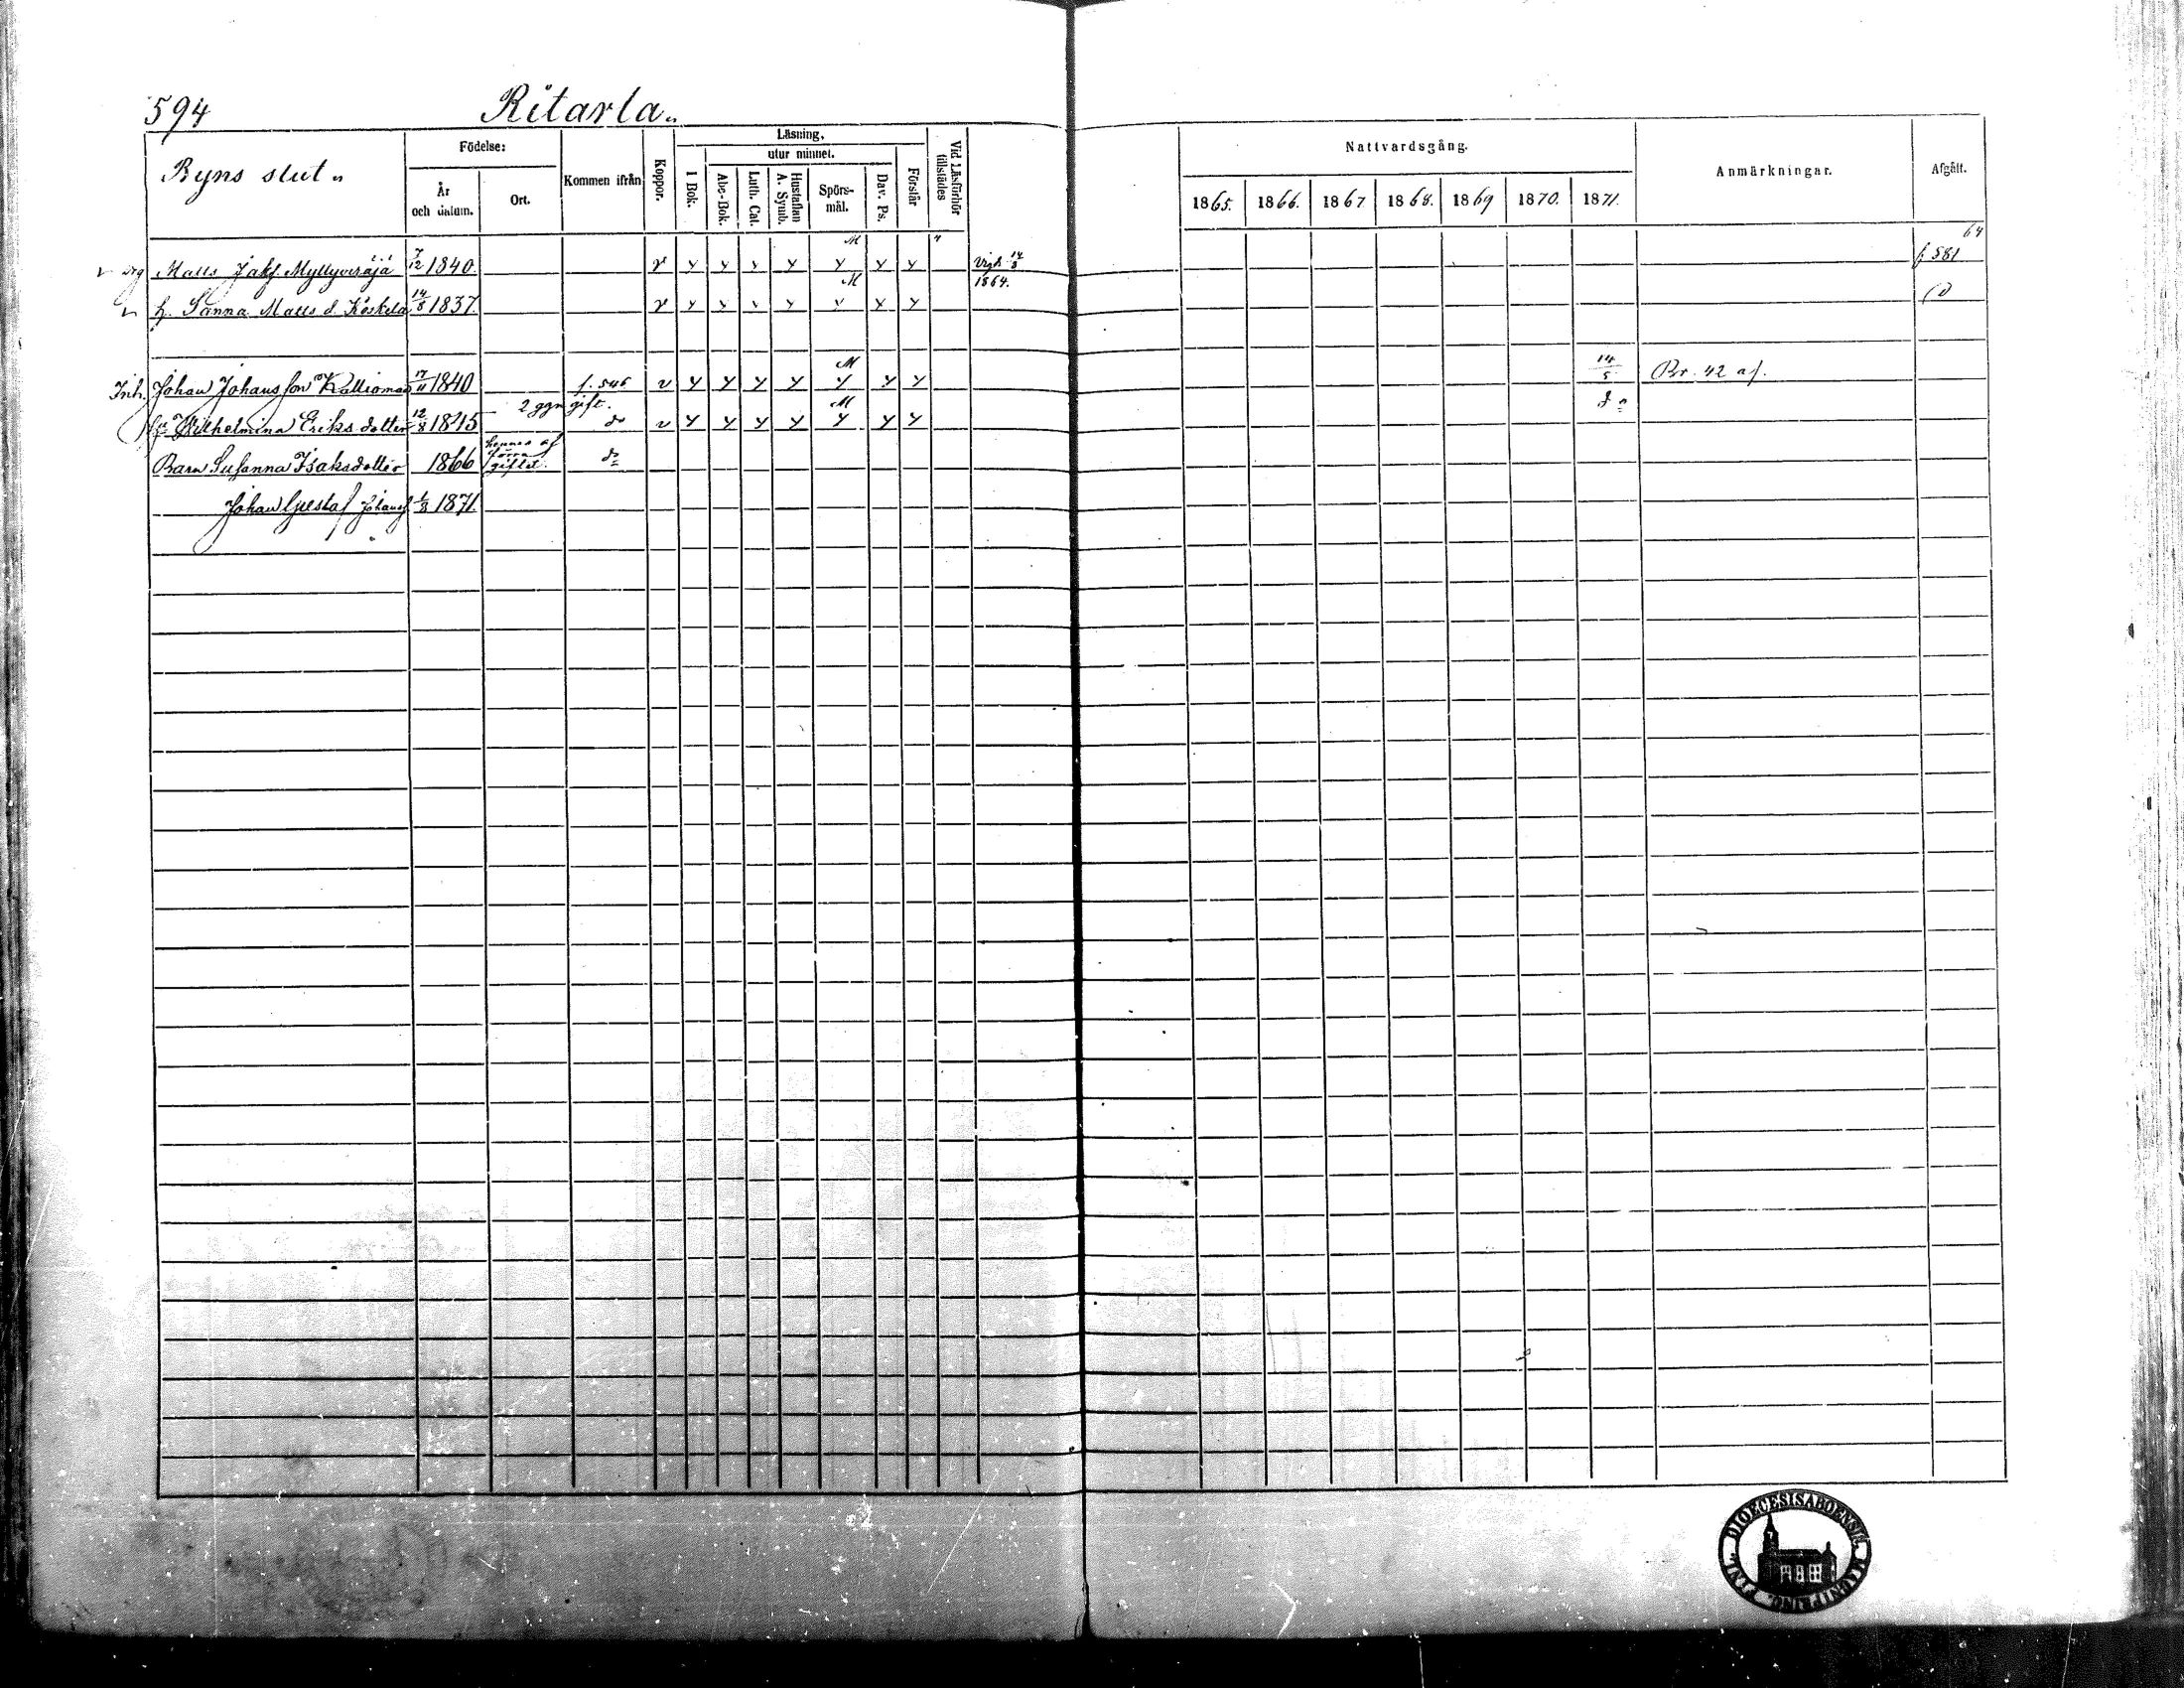 594 Ritarla.
Byns slut.
Födelse:
År och datum.
Ort.
Kommen ifrån
Koppor.
Läsning,
utur minnet.
I Bok.
Abc-Bok.
Luth. Cat.
Hustaflan A. Symb.
Spörs-mål.
Dav. Ps.
Förstår
Vid Läsförhör tillstädes
Nattvardsgång.
1865. 1866. 1867 1868. 1869 1870. 1871.
Anmärkningar.
Afgått.
Matts Jakf Myllyviräjä 7/12 1840. v y y y y y y y M Vigd 14/3 1864. 64 f 581
h. Sanna Matts d. Koskela 14/8 1837. v y y y y y y y M
Inh. Johan Johansson Kalliomaa 17/11 1840 f. 546 v y y y y y y y M 14/5 Br. 42 af.
2 ggn gift.
h: Wilhelmina Eriksdotter 12/8 1845 do v y y y y y y y M do
Barn Susanna Isaksdotter 1866 hennes af förra giftet. do
Johan Gustaf Johansf 1/3 1871.
DIOECESIS ABOENSIS